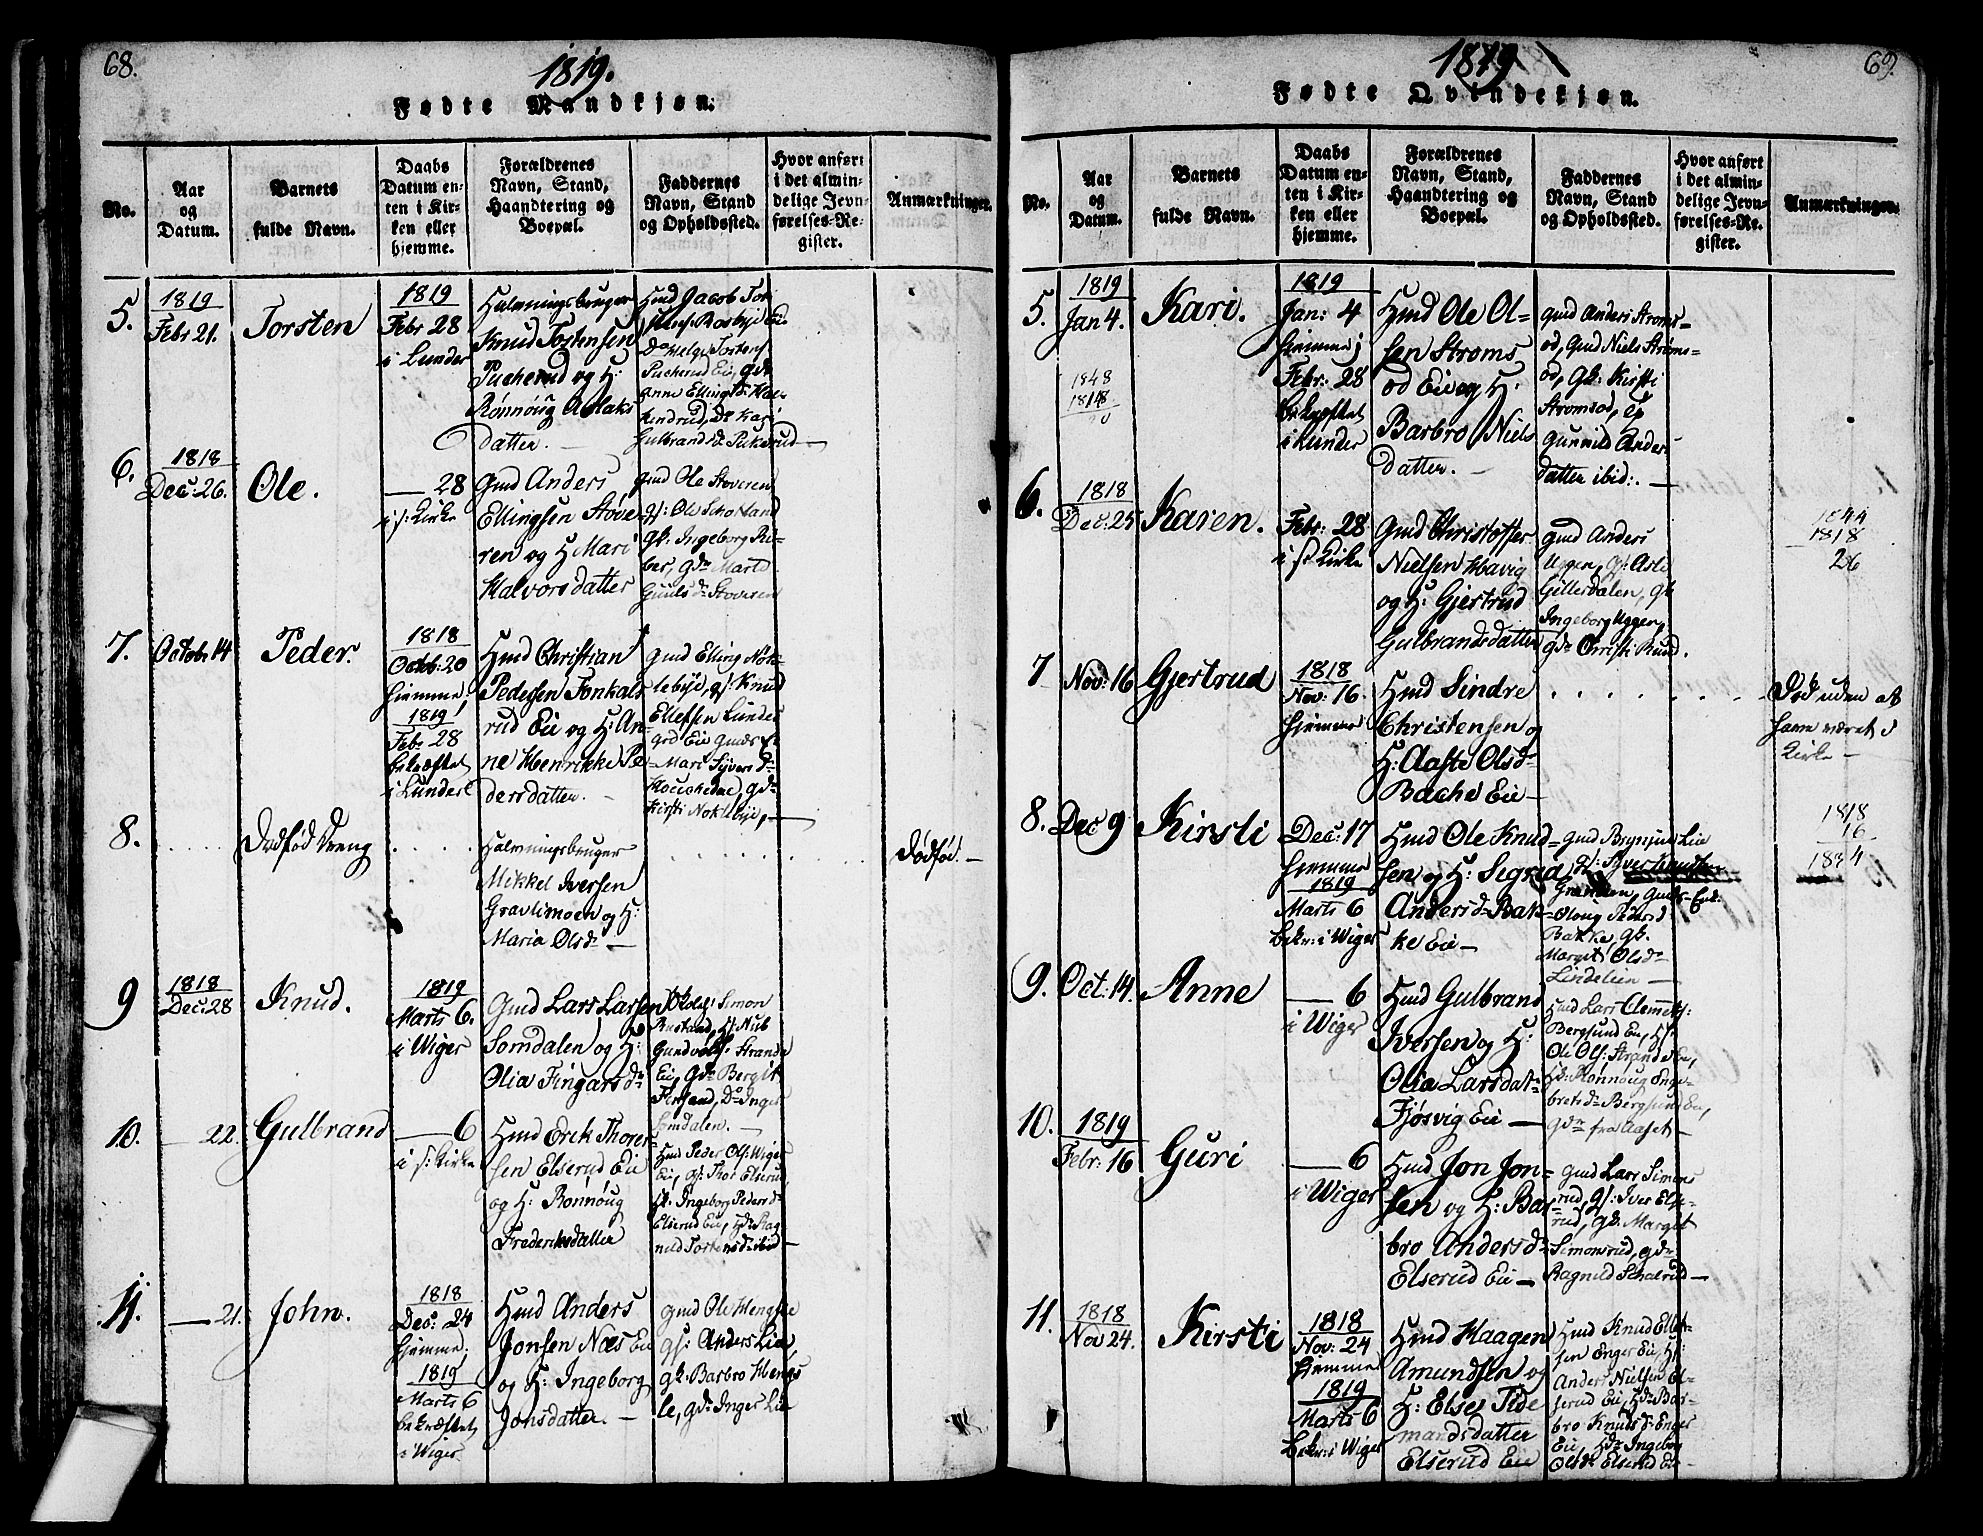 68.
1819.
Fødte Mandkjøn:
No.
Aar
og
Datum.
Barnets
fulde Navn.
Daabs
Datum en-
ten i Kir-
ken eller
hjemme.
Forældrenes
Navn, Stand,
Haandtering og
Boepæl.
Faddernes
Navn, Stand
og Opholdssted.
Hvor anført
i det almin-
delige Jevn-
førelses-Re-
gister.
Anmærkninger.
5.
1819
Febr 21.
Torsten
1819
Febr 28
i Lunder
Halvningsbruger
Knud Tostensen
og H:
Rønnoug Aslaks
datter.
6.
1818
Dec: 26.
Ole.
— 28
i s: Kirke
Gmd Anders
Ellingsen Støve-
ren og H Mari
Halvorsdatter
Gmd Ole Stoveren
gk: Ingeborg Ri-
ber, gdr Marte
7.
Octob: 14
Peder.
1818
Octob: 20
hjemme,
1819
Febr 28
bekræftet
i Lunder
Hmd Christian
Pedersen
rud Eie og H: An-
ne Henrikke Pe-
dersdatter.
Gmd Elling Nøk-
lebye, gs: Knud
Ellefsen Lunder
8.
Dødfød Dreng
Halvningsbruger
Mikkel Iversen
Gravlimoen og H:
Maria Olsdr —
Dødfød. —
9
1818
Dec: 28
Knud.
1819
Marts 6.
i Wiger
Gmd Lars Larsen
Somdalen og H:
Olia Fingarsdr
Simon
Rustand,
Strande
Eie, gdr Bergit
Do Inger
Somdalen. —
10.
— 22.
Gulbrand
— 6
i s: Kirke
Hmd Erik Thorer-
sen Elserud Eie
og H: Ronnoug
Frederiksdatter
Hmd Peder Ols: Wiger
Eie, gs: Thor Elserud,
Ingeborg Pedersd
Elserud Eie,
11.
— 21.
John.
1818
Dec: 24
hjemme;
1819
Marts 6
bekræftet
i Wiger
Hmd Anders
Jonsen Næs Eie
og H: Ingeborg
Jonsdatter. —
Gmd Ole Hengsle
gs: Anders Lie,
gk: Barbro Hengs
le, gdr Inger Lie
69.
1819
Fødte Qvindekjøn.
No.
Aar
og
Datum.
Barnets
fulde Navn.
Daabs
Datum en-
ten i Kir-
ken eller
hjemme.
Forældrenes
Navn, Stand,
Haandtering og
Boepæl.
Faddernes
Navn, Stand
og Opholdssted.
Hvor anført
i det almin-
delige Jevn-
førelses-Re-
gister.
Anmærkninger.
5.
1819
Jan 4.
1848
1818
Kari.
1819
Jan: 4
hjemme;
Febr: 28
bekræftet
i Lunder
Hmd Ole Ol=
sen Stroms
od Eie og H:
Barbro Niels
datter. —
Gmd Anders Stroms=
od, Gmd Niels Strøms=
od, gk: Kirsti
Stromsod,
Gunnild Anders
datter ibid: —
6.
1818
Dec: 25
Karen.
Febr: 28
i s: Kirke
Gmd Christoffer
Nielsen Havig
og H: Gjertrud
Gulbrandsdatter
Gmd Anders
Uggen, gs: Asle
Gillerdalen, gk
Ingeborg Uggen,
gdr Christi Ruud.
1844
1818
26
7
Nov: 16
Gjertrud
1818
Nov: 16.
hjemme
Hmd Sindre
Christensen og
H: Aaste Olsdr
Bache Eie —
Død uden at
have været i
Kirke —
8.
Dec 9
Kirsti
Dec: 17
hjemme
1819
Marts 6
bekr: i Wiger
Hmd Ole Knud=
sen og H: Sigrid
Andersdr Bak=
ke Eie —
Gmd Brynjul Lie
Oloug Pedersd
Bakke, gk.
Margit Olsdr
Lindelien —
1818
16
1834
9.
Oct: 14.
Anne
— 6
i Wiger
Hmd Gulbrand
Iversen og H:
Olia Larsdat=
Fjøsvig Eie —
Hmd Lars Clemets:
Bergsund Eie, Hs:
Ole Ols: Strande Eie,
Hk: Ronnoug Enge-
bretsdr Bergsund Eie,
gdr fra Aaset —
10.
1819
Febr: 16
Guri
— 6
i Wiger
Hmd Jon Jon=
sen og H: Bar=
bro Andersdr
Elserud Eie —
Gmd Lars Simons
rud, gs: Iver Else-
rud, gk: Margit
Simonsrud, gdr
Ragnild
11.
1818
Nov 24.
Kirsti
1818
Nov: 24
hjemme
1819
Marts 6
bekr: i Wiger
Hmd Haagen
Amundsen og
H: Else Tide
mandsdatter
Elserud Eie
Hmd Knud Ellef-
sen Enger Eie, Hs:
Anders Nielsen El-
serud Eie, Hk: Bar-
bro Knutsdr Enger
Eie, Hdr Ingeborg
Olsdr Elserud Eie —